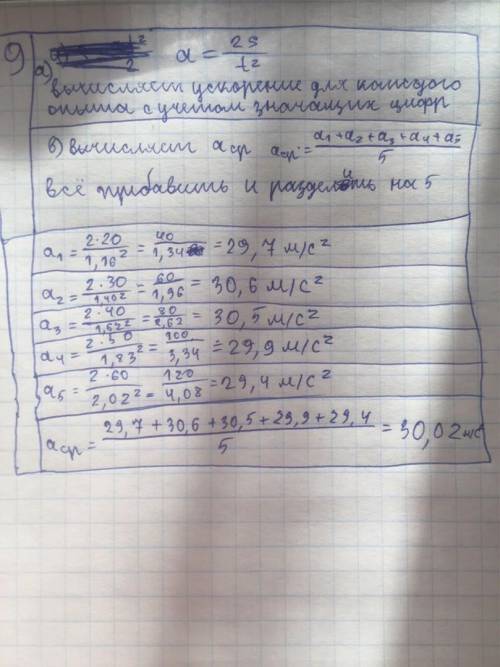 9
а) a = 2s / t²
вычисляет ускорение для каждого
опыта с учетом значащих цифр
в) вычисляет aср aср = a1+a2+a3+a4+a5 / 5
всё прибавить и разделить на 5
a1 = 2·20 / 1,16² = 40 / 1,34 = 29,7 м/с²
a2 = 2·30 / 1,40² = 60 / 1,96 = 30,6 м/с²
a3 = 2·40 / 1,62² = 80 / 2,62 = 30,5 м/с²
a4 = 2·50 / 1,83² = 100 / 3,34 = 29,9 м/с²
a5 = 2·60 / 2,02² = 120 / 4,08 = 29,4 м/с²
aср = 29,7 + 30,6 + 30,5 + 29,9 + 29,4 / 5 = 30,02 м/с²